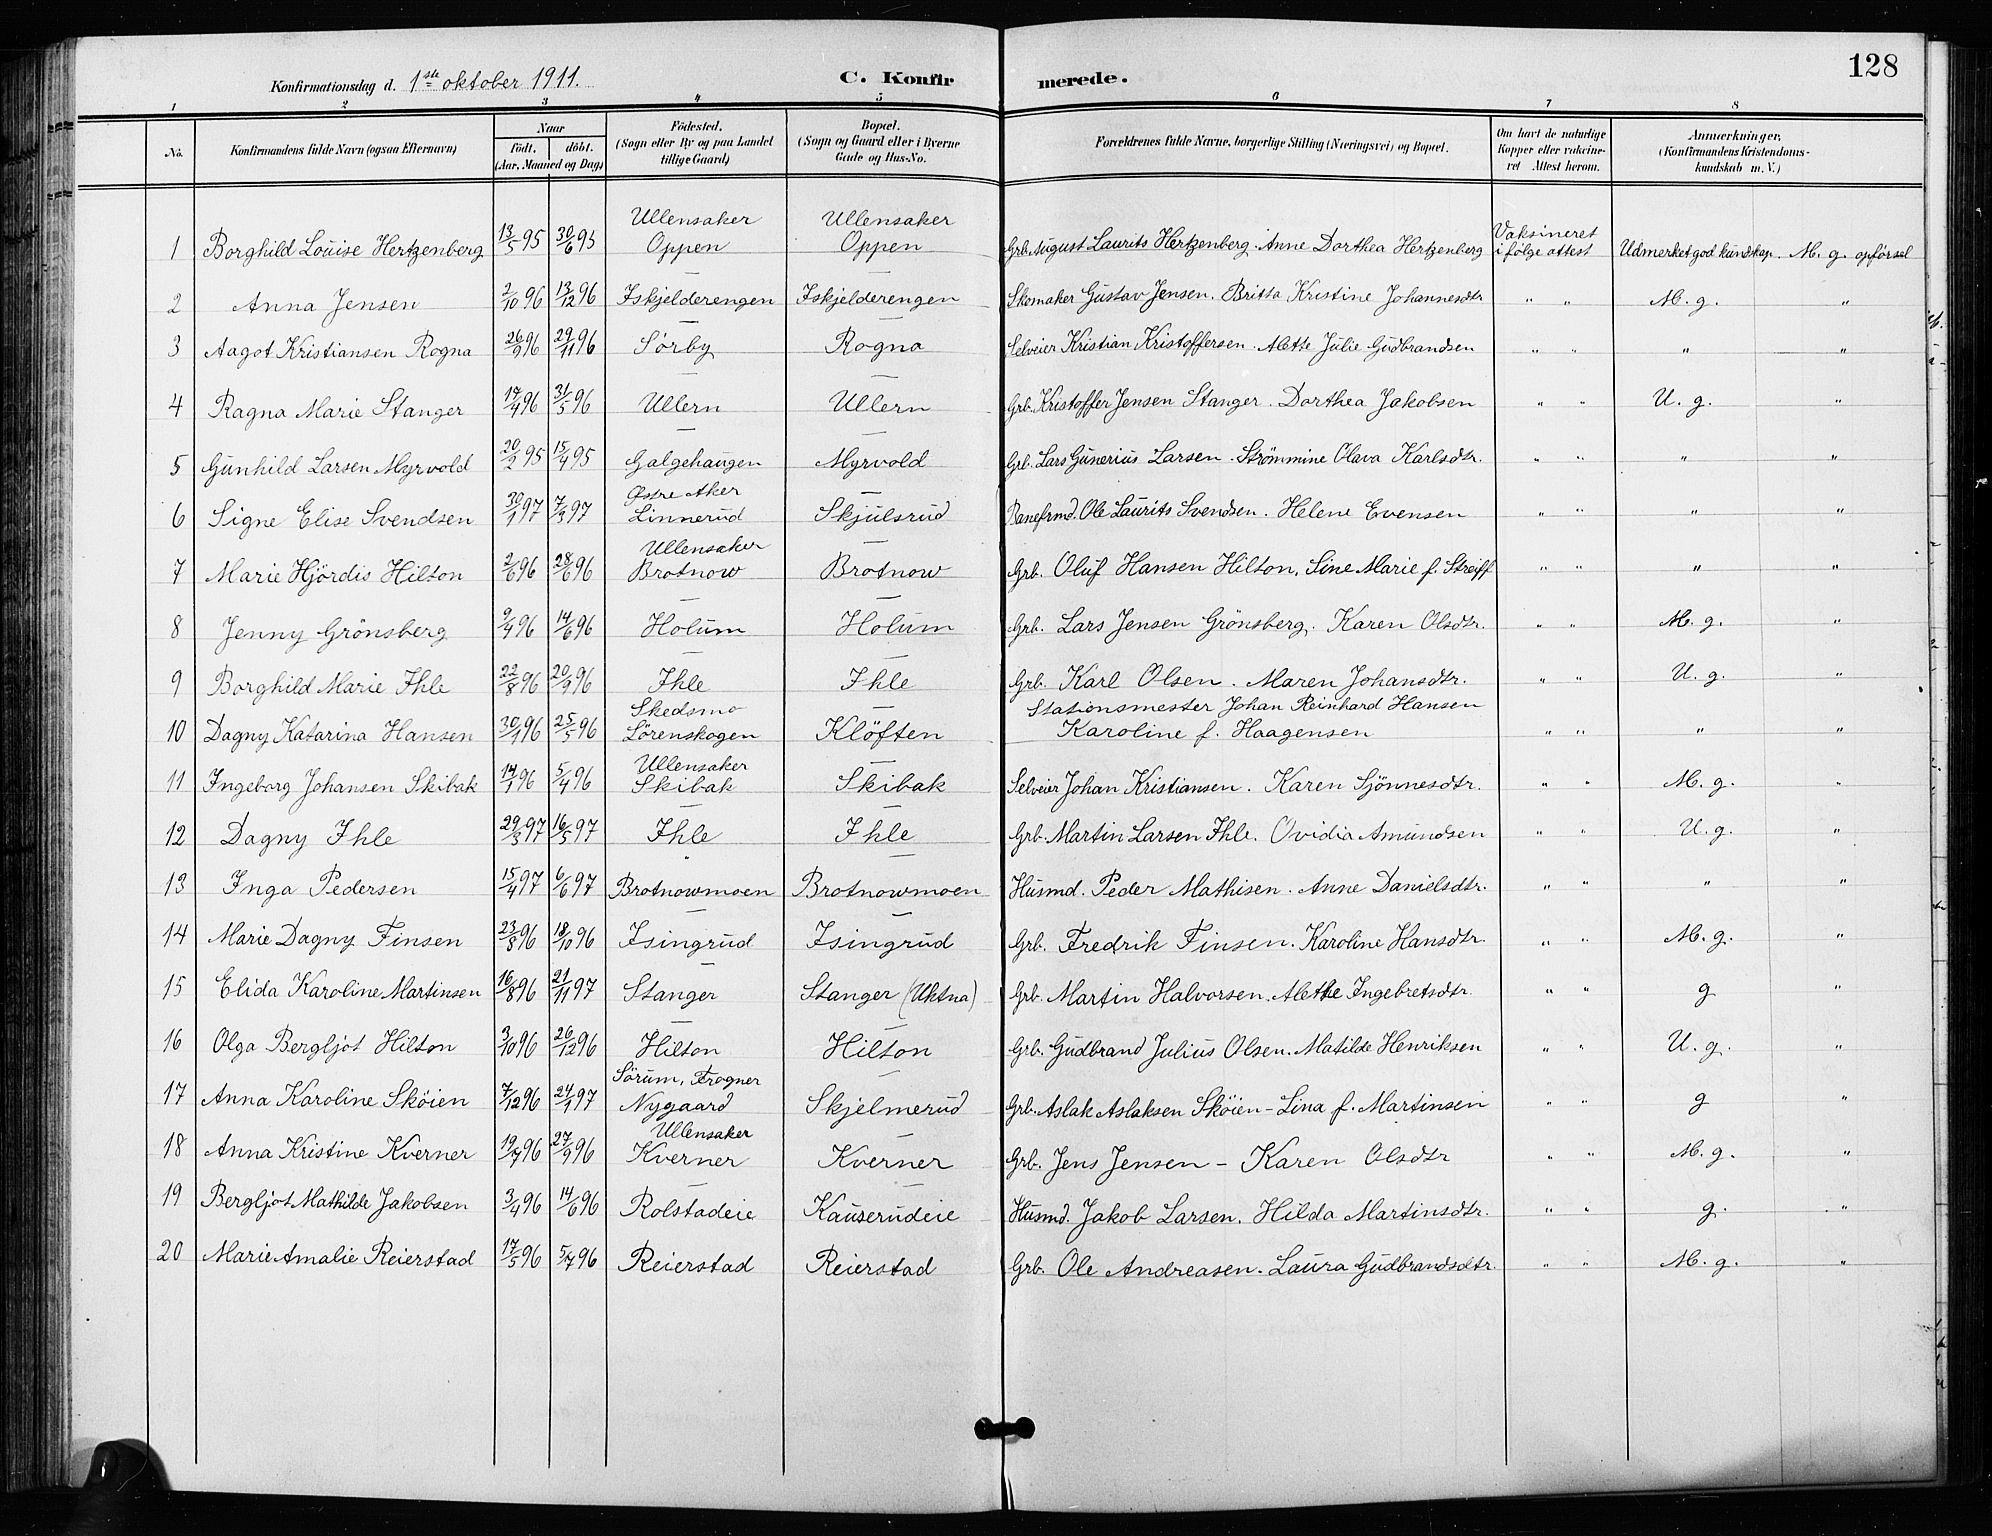 128
Konfirmationsdag d. 1ste oktober 1911. C. Konfir merede.
1 2 3 4 5 6 7 8
No. Konfirmandens fulde Navn (ogsaa Efternavn) Naar födt. döbt. (Aar, Maaned og Dag) Födested. (Sogn eller By og paa Landet tillige Gaard) Bopæl. (Sogn og Gaard eller i Byerne Gade og Hus-No. Forældrenes fulde Navne, borgerlige Stilling (Næringsvei) og Bopæl. Om havt de naturlige Kopper eller vakcineret Attest herom. Anmærkninger, (Konfirmandens Kristendomskundskab m. V.)
1 Borghild Louise Hertzenberg 13/5 95 30/6 95 Ullensaker Oppen Ullensaker Oppen Grb. August Laurits Hertzenberg. Anne Dorthea Hertzenberg Vaksineret i følge attest Udmerket god kundskap. M. g. opførsel
2 Anna Jensen 2/10 96 13/12 96 — Iskjelderengen — Iskjelderengen Skomaker Gustav Jensen. Britta Kristine Johannesdtr " " M. g. "
3 Aagot Kristiansen Rogna 26/9 96 29/11 96 — Sørby — Rogna Selveier Kristian Kristoffersen. Mette Julie Gudbrandsen " " " "
4 Ragna Marie Stanger 17/4 96 31/5 96 — Ullern — Ullern Grb. Kristoffer Jensen Stanger. Dorthea Jakobsen " " U. g. "
5 Gunhild Larsen Myrvold 20/2 95 15/4 95 — Galgehaugen — Myrvold Grb. Lars Gunerius Larsen. Strømmine Olava Karlsdtr. " " " "
6 Signe Elise Svendsen 30/1 97 7/3 97 Østre Aker Linnerud — Skjulsrud Banefrmd. Ole Laurits Svendsen. Helene Evensen " " " "
7 Marie Hjördis Hilton 2/6 96 28/6 96 Ullensaker Brotnow — Brotnow Grb. Oluf Hansen Hilton, Sine Marie f. Streiff " " " "
8 Jenny Grönsberg 9/4 96 14/6 96 — Holum — Holum Grb. Lars Jensen Grönsberg. Karen Olsdtr. " " M. g. "
9 Borghild Marie Ihle 22/8 96 20/9 96 — Ihle — Ihle Grb. Karl Olsen. Maren Johansdtr. " " U. g. "
10 Dagny Katarina Hansen 30/1 96 25/5 96 Skedsmo Lörenskogen — Klöften Stationsmester Johan Reinhard Hansen Karoline f. Haagensen " " " "
11 Ingeborg Johansen Skibak 14/1 96 5/4 96 Ullensaker Skibak — Skibak Selveier Johan Kristiansen. Karen Sjönnesdtr. " " M. g. "
12 Dagny Ihle 29/3 97 16/5 97 — Ihle — Ihle Grb. Martin Larsen Ihle. Ovidia Amundsen " " U. g. "
13 Inga Pedersen 15/4 97 6/6 97 " Brotnowmoen — Brotnowmoen Husmd. Peder Mathisen. Anne Danielsdtr. " " " "
14 Marie Dagny Finsen 23/8 96 18/10 96 — Isingrud — Isingrud Grb. Fredrik Finsen. Karoline Hansdtr. " " M. g. "
15 Elida Karoline Martinsen 16/8 96 21/11 97 — Stanger Stanger (Uktna) Grb. Martin Halvorsen. Alethe Ingebretsdtr. " " g "
16 Olga Bergljot Hilton 3/10 96 26/12 96 — Hilton — Hilton Grb. Gudbrand Julius Olsen. Matilde Henriksen " " U. g. "
17 Anna Karoline Sköien 7/12 96 24/1 97 Sörum, Frogner Nygaard — Skjelmerud Grb. Aslak Aslaksen Sköien - Lina f. Martinsen " " g "
18 Anna Kristine Kverner 19/7 96 27/9 96 Ullensaker Kverner — Kverner Grb. Jens Jensen - Karen Olsdtr " " M. g. "
19 Bergljot Mathilde Jakobsen 3/4 96 14/6 96 — Rolstadeie — Kauserudeie Husmd. Jakob Larsen. Hilda Martinsdtr. " " g. "
20 Marie Amalie Reierstad 17/5 96 5/7 96 Reierstad Reierstad Grb. Ole Andreasen. Laura Gudbrandsdtr. " " M. g. "